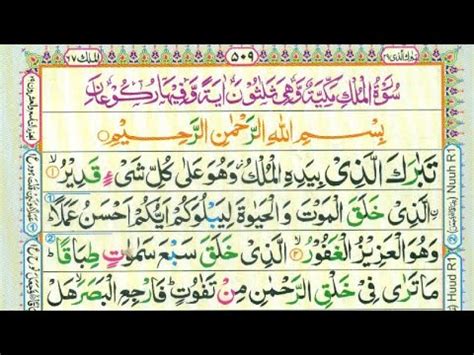 الملك ٦٧
٥٠٩
تبرك الذي ٢٩
سُوْرَةُ الْمُلْكِ مَكِّيَّةٌ وَّهِىَ ثَلٰثُوْنَ اٰيَةً وَّفِيْهَا رُكُوْعَانِ
بِسْمِ اللّٰهِ الرَّحْمٰنِ الرَّحِيْمِ
تَبٰرَكَ الَّذِىْ بِيَدِهِ الْمُلْكُ وَهُوَ عَلٰى كُلِّ شَىْءٍ قَدِيْرٌ ۝١
الَّذِىْ خَلَقَ الْمَوْتَ وَالْحَيٰوةَ لِيَبْلُوَكُمْ اَيُّكُمْ اَحْسَنُ عَمَلًا
وَهُوَ الْعَزِيْزُ الْغَفُوْرُ ۝٢ الَّذِىْ خَلَقَ سَبْعَ سَمٰوٰتٍ طِبَاقًا
مَا تَرٰى فِىْ خَلْقِ الرَّحْمٰنِ مِنْ تَفٰوُتٍ فَارْجِعِ الْبَصَرَ هَلْ
Nuuh R1
Huud R1